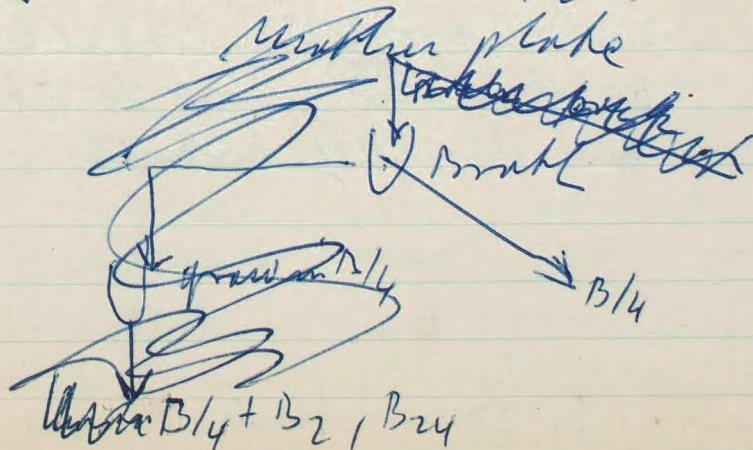 Mother plate
Broth
grown in B/4
B/4
B/4 + B2, B24